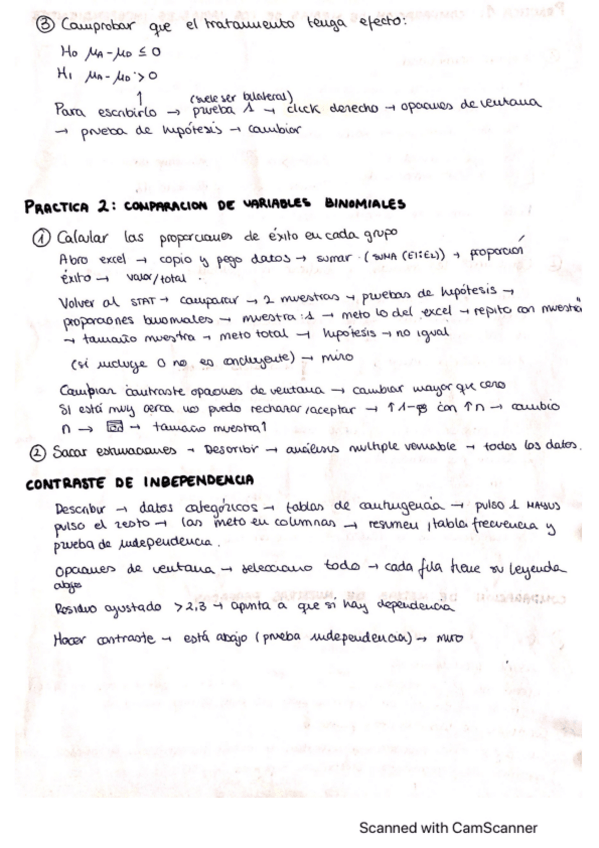 ③ Comprobar que el tratamiento tenga efecto:
H0 μA - μD ≤ 0
H1 μA - μD > 0
↑ (suele ser bilateral)
Para escribirlo → prueba 1 → click derecho → opciones de ventana
→ prueba de hipótesis → cambiar
PRACTICA 2: COMPARACION DE VARIABLES BINOMIALES
① Calcular las proporciones de éxito en cada grupo
Abro excel → copio y pego datos → sumar (SUMA (E1:E2)) → proporción
éxito → valor/total.
Volver al STAT → comparar → 2 muestras → pruebas de hipótesis →
proporciones binomiales → muestra 1 → meto lo del excel → repito con muestra
→ tamaño muestra → meto total → hipótesis → no igual
(si incluye 0 no es concluyente) → miro
Cambiar contraste opciones de ventana → cambiar mayor que cero
Si está muy cerca no puedo rechazar/aceptar → ↑ 1-β con ↑n → cambio
n → → tamaño muestra 1
② Sacar estimaciones → Describir → análisis multiple variable → todos los datos.
CONTRASTE DE INDEPENDENCIA
Describir → datos categóricos → tablas de contingencia → pulso 1 MAYUS
pulso el resto → las meto en columnas → resumen, tabla frecuencia y
prueba de independencia.
Opciones de ventana → selecciono todo → cada fila tiene su leyenda
abajo
Residuo ajustado > 2,3 → apunta a que si hay dependencia
Hacer contraste → está abajo (prueba independencia) → miro
Scanned with CamScanner